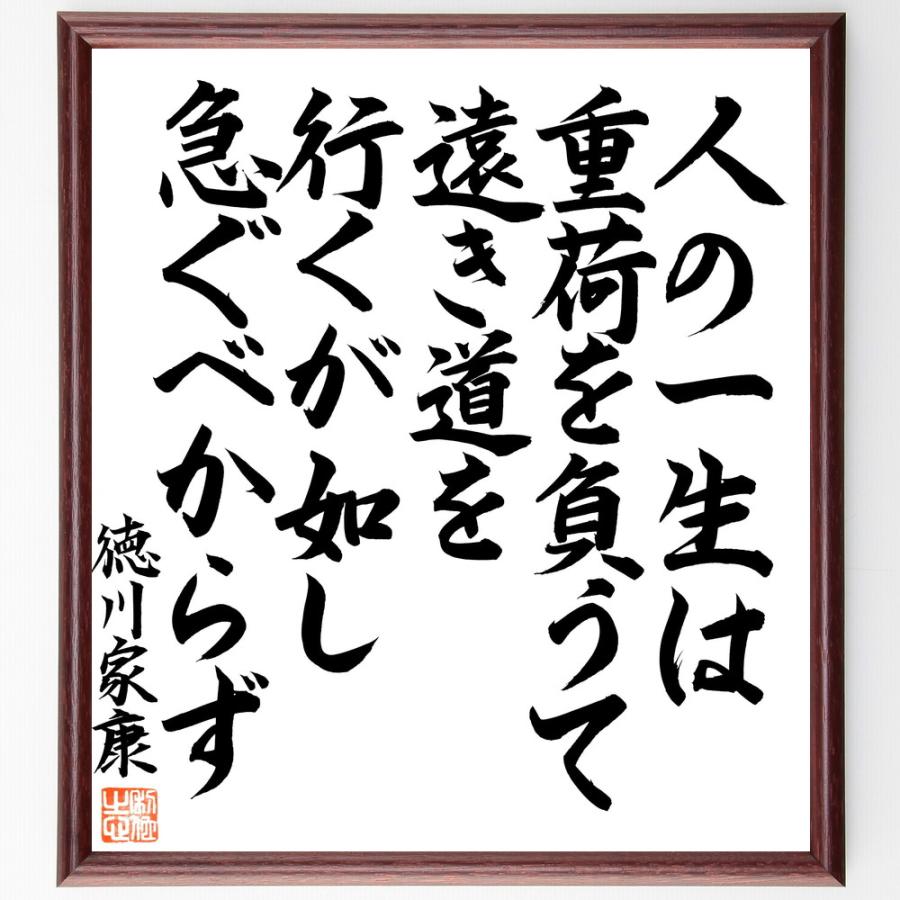 人の一生は
重荷を負うて
遠き道を
行くが如し
急ぐべからず
徳川家康